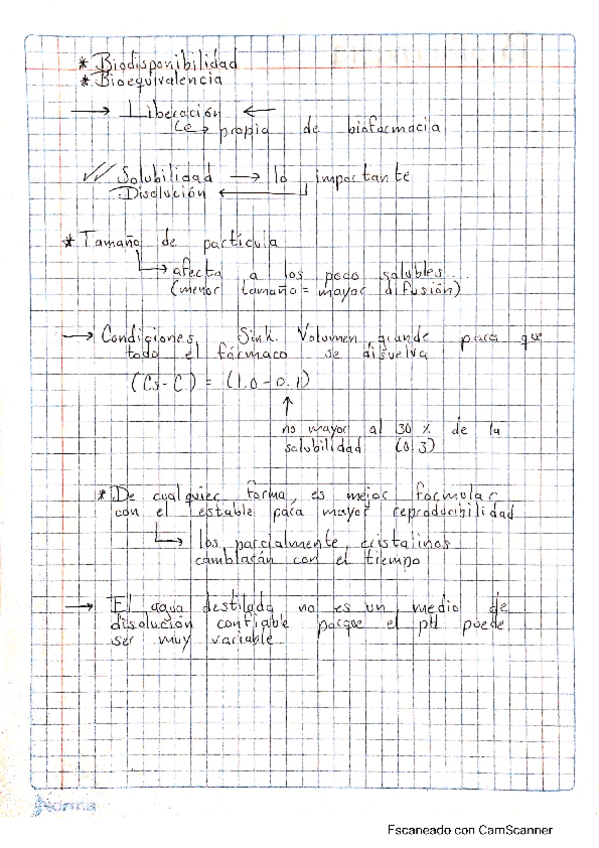 * Biodisponibilidad
* Bioequivalencia
→ Liberación ←
↳ propia de biofarmacia
Solubilidad → lo importante
Disolución ←
* Tamaño de partícula
↳ afecta a los poco solubles...
(menor tamaño = mayor difusión)
→ Condiciones Sink. Volumen grande para que
todo el fármaco se disuelva
(Cs - C) = (1.0 - 0.1)
↑
no mayor al 30 % de la
solubilidad (0.3)
* De cualquier forma, es mejor formular
con el estable para mayor reproducibilidad
↳ los parcialmente cristalinos
cambiarán con el tiempo
→ El agua destilada no es un medio de
disolución confiable porque el pH puede
ser muy variable.
Norma
Escaneado con CamScanner